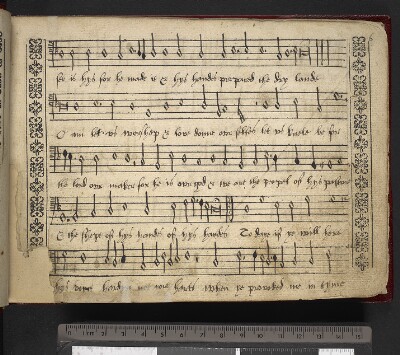 se is hys for he made it & hys handes prepared the dry lande
O cum let us worshyp & fowe downe our selfes let us knele be fore
the lord our maker for he is our god & we are the pepel of hys pasture
& the shepe of hys handes of hys handes To daye yf ye will here
hys voyce harden not your harts When ye provoked me in tyme